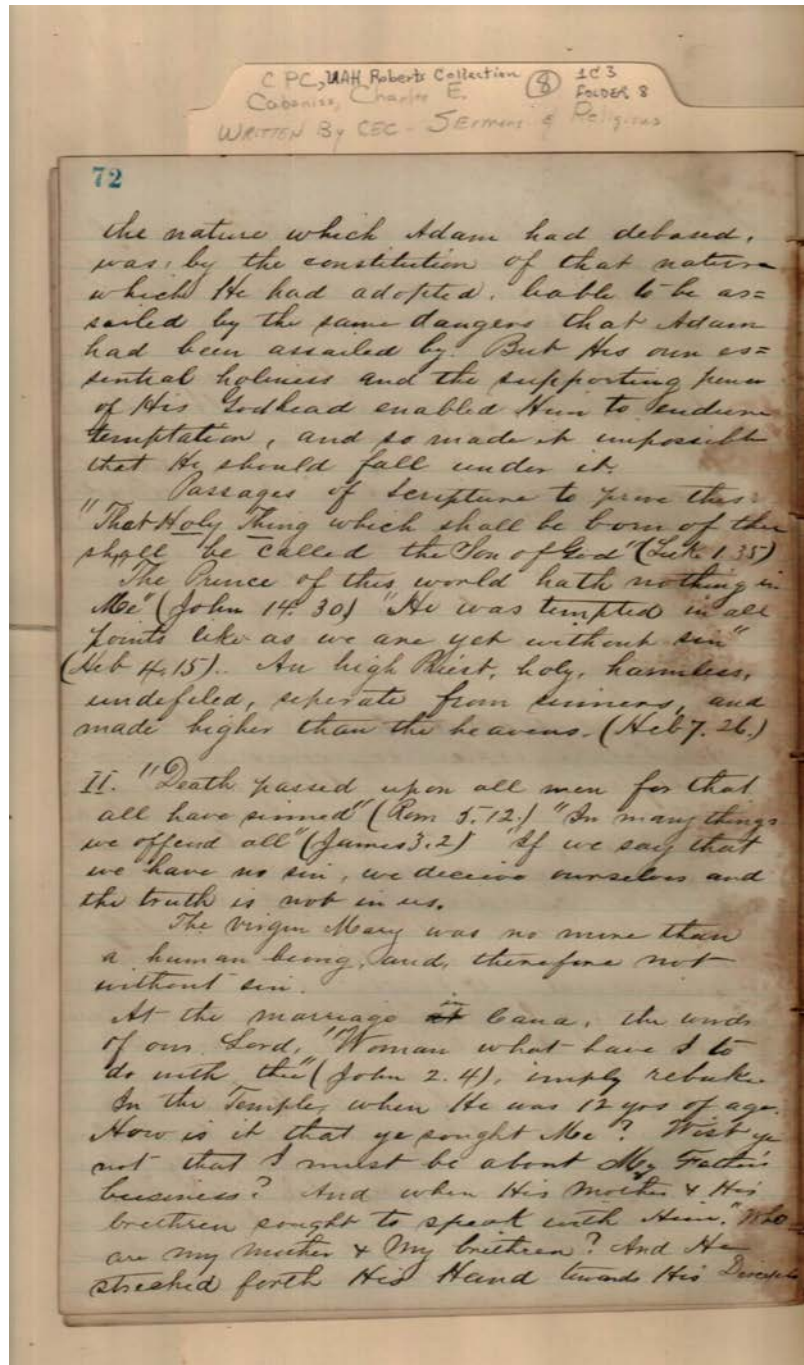 CPC, UAH Roberts Collection (8) 1C3
Cabaniss, Charles E. FOLDER 8
WRITTEN By CEC - SERMONS & Religious
72
the nature which Adam had debased,
was, by the constitution of that nature
which He had adopted, liable to be as=
sailed by the same dangers that Adam
had been assailed by. But His own es=
sential holiness and the supporting power
of His Godhead enabled Him to endure
temptation, and so made it impossible
that He should fall under it.
Passages of Scripture to prove this:
"That Holy Thing which shall be born of thee
shall be called the Son of God" (Luke 1.35)
The Prince of this world hath nothing in
Me" (John 14.30) "He was tempted in all
points like as we are yet without sin"
(Heb 4.15). An high Priest, holy, harmless,
undefiled, seperate from sinners, and
made higher than the heavens. (Heb 7.26.)
II. "Death passed upon all men for that
all have sinned" (Rom 5.12.) "In many things
we offend all" (James 3.2) "If we say that
we have no sin, we deceive ourselves and
the truth is not in us.
The virgin Mary was no more than
a human being, and, therefore not
without sin.
At the marriage at in Cana, the words
of our Lord, "Woman what have I to
do with thee" (John 2.4), imply rebuke.
In the Temple, when He was 12 yrs of age.
How is it that ye sought Me? Wist ye
not that I must be about My Father's
business? And when His Mother & His
brethren sought to speak with Him, "Who
are my mother & My brethren? And He
streched forth His Hand towards His Disciples